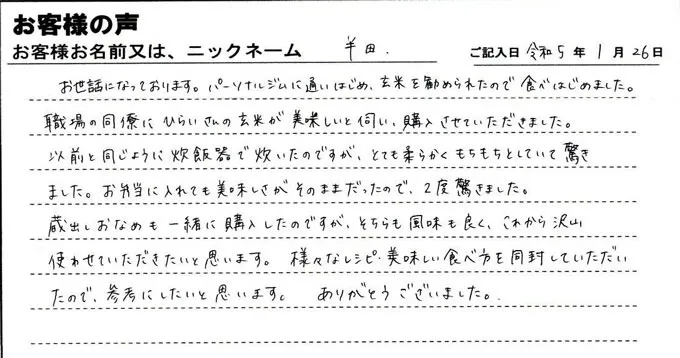 お客様の声
お客様お名前又は、ニックネーム 半田. ご記入日 令和5年1月26日
お世話になっております。パーソナルジムに通いはじめ、玄米を勧められたので食べはじめました。
職場の同僚にひらいさんの玄米が美味しいと伺い、購入させていただきました。
以前と同じように炊飯器で炊いたのですが、とても柔らかくもちもちとしていて驚き
ました。お弁当に入れても美味しさがそのままだったので、2度驚きました。
蔵出しおなめも一緒に購入したのですが、そちらも風味も良く、これから沢山
使わせていただきたいと思います。様々なレシピ・美味しい食べ方を同封していただい
たので、参考にしたいと思います。 ありがとうございました。